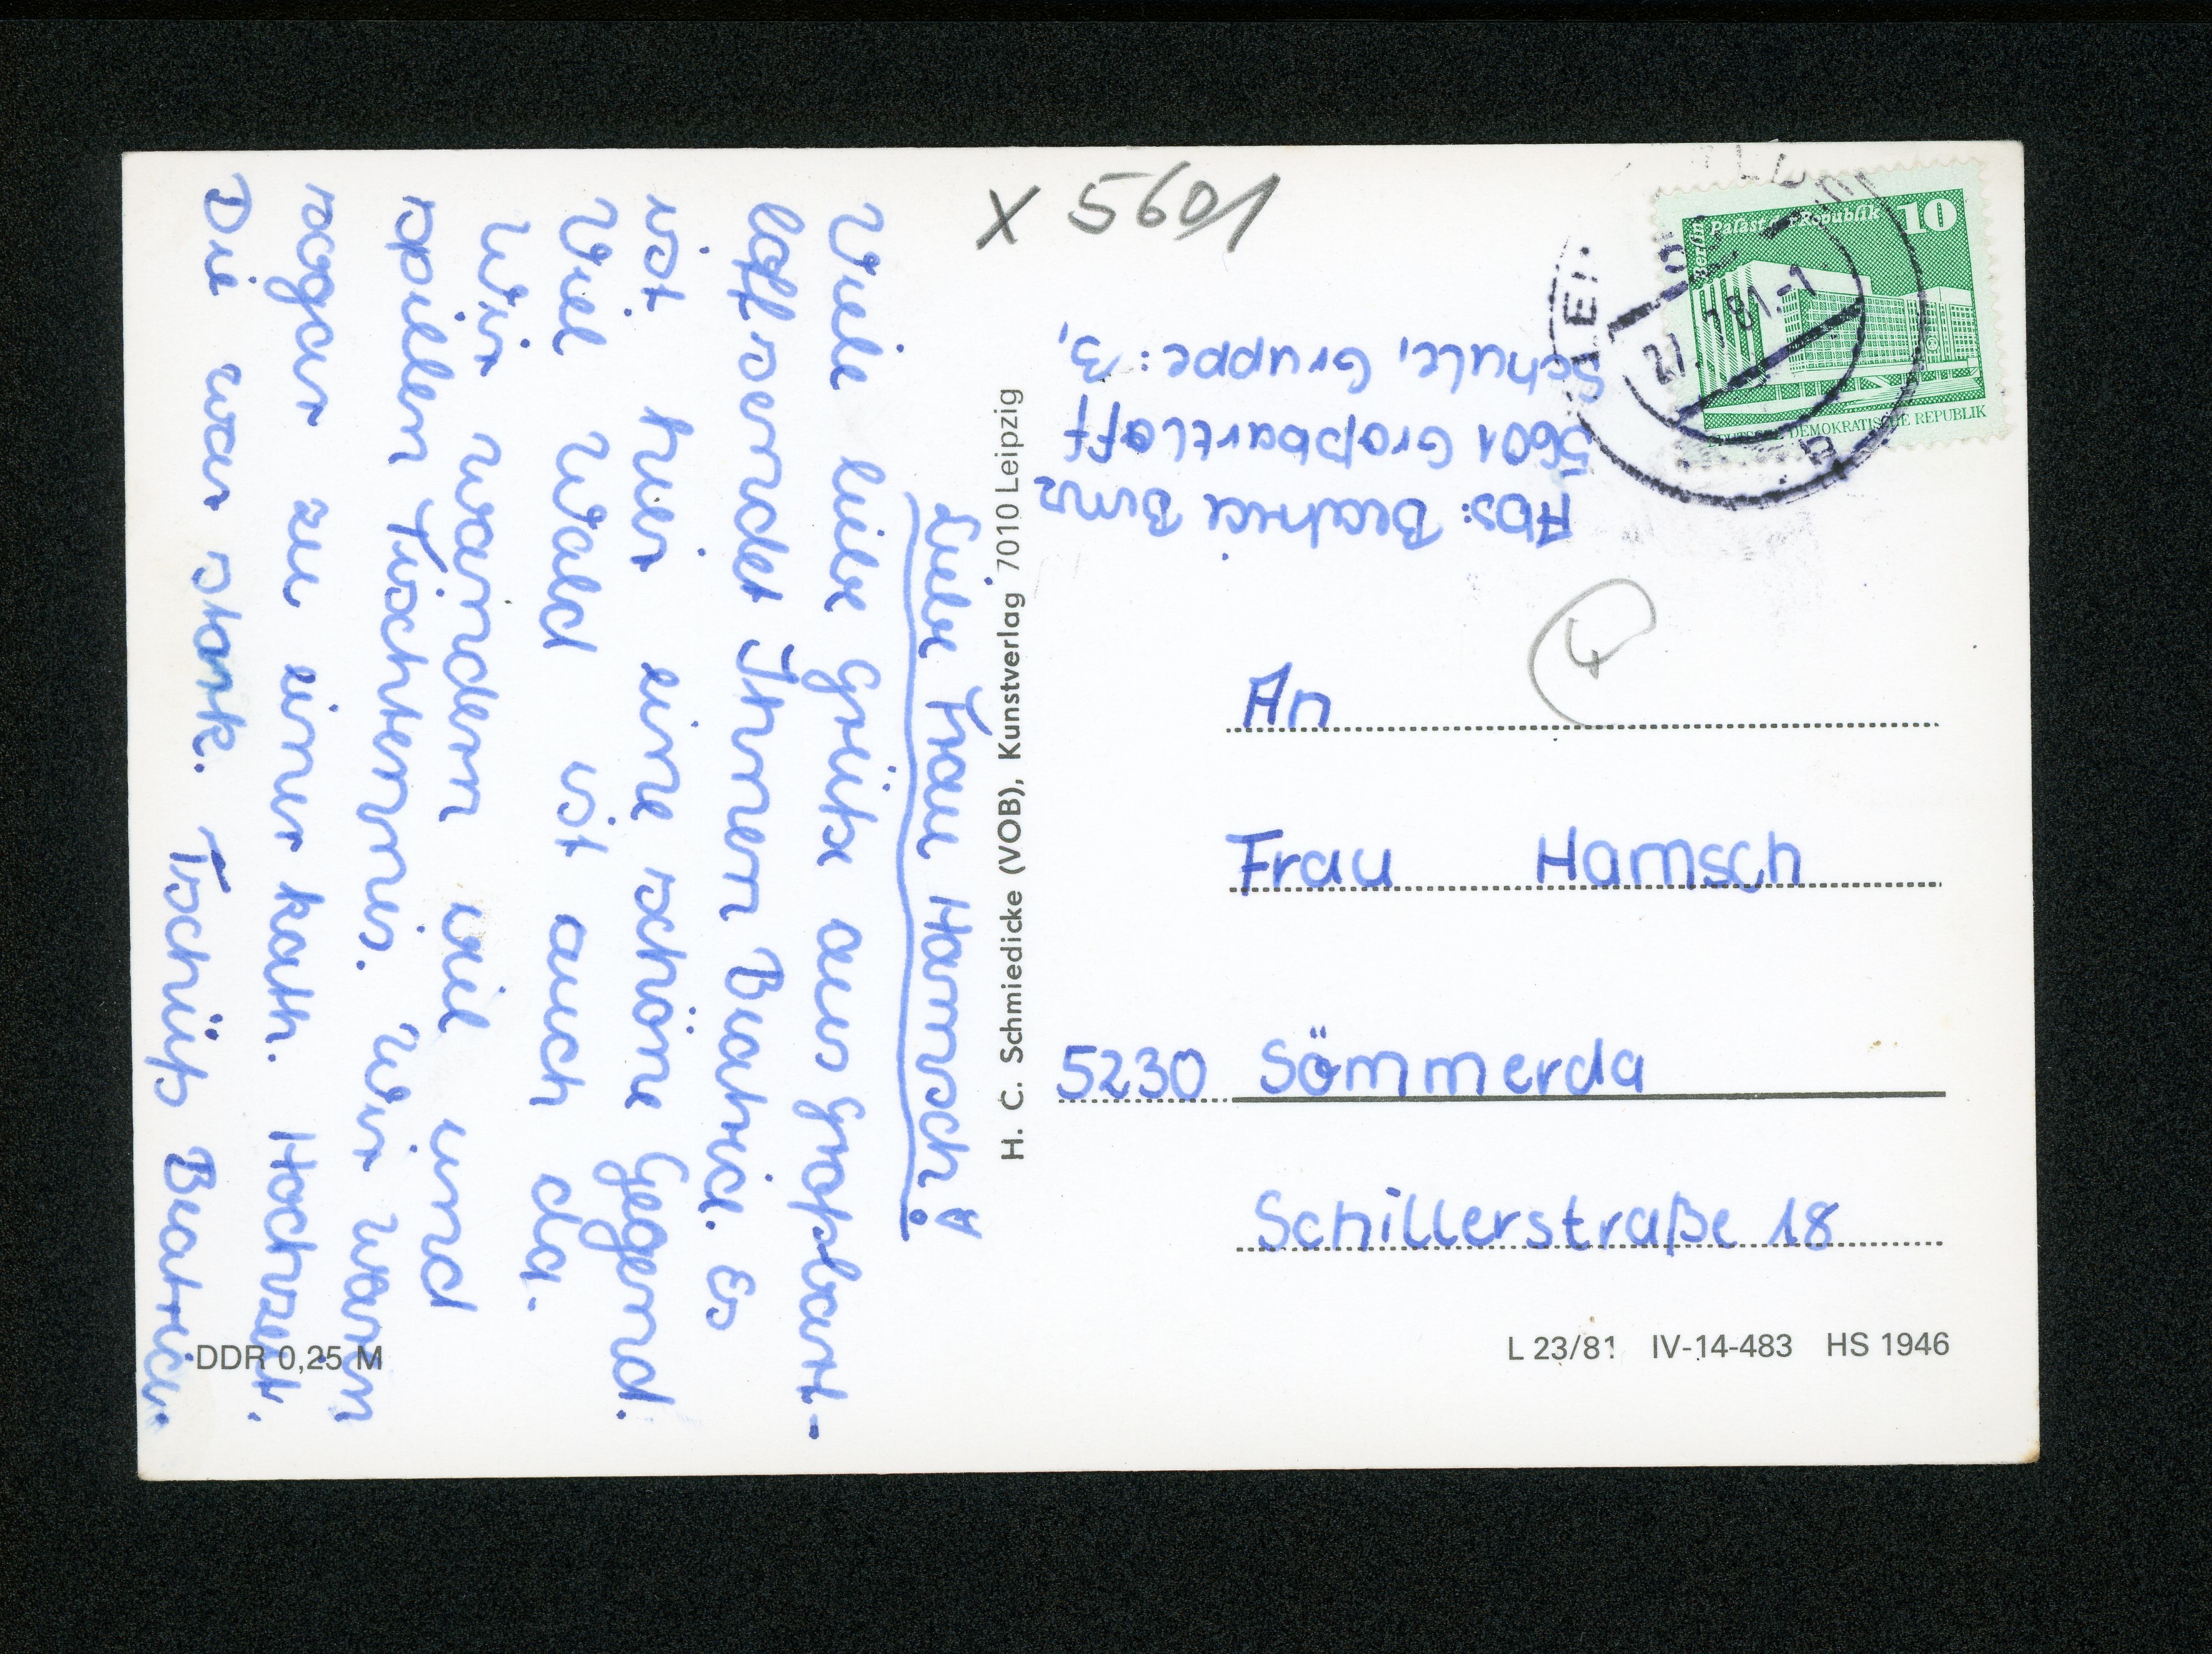 Liebe Frau Hamsch!
Viele liebe Grüße aus Großbart-
loff sendet Ihnen Beatrice. Es
ist hier eine schöne Gegend.
Viel Wald ist auch da.
Wir wandern viel und
spielen Tischtennis. Wir waren
sogar zu einer kath. Hochzeit.
Die war stark. Tschüß Beatrice.
DDR 0,25 M
H. C. Schmiedicke (VOB), Kunstverlag 7010 Leipzig
X 5601
Abs: Beatrice
5601 Großbartloff
Schule, Gruppe: B,
Berlin
Palast der Republik 10
DEUTSCHE DEMOKRATISCHE REPUBLIK
An
Frau Hamsch
5230 Sömmerda
Schillerstraße 18
L 23/81 IV-14-483 HS 1946